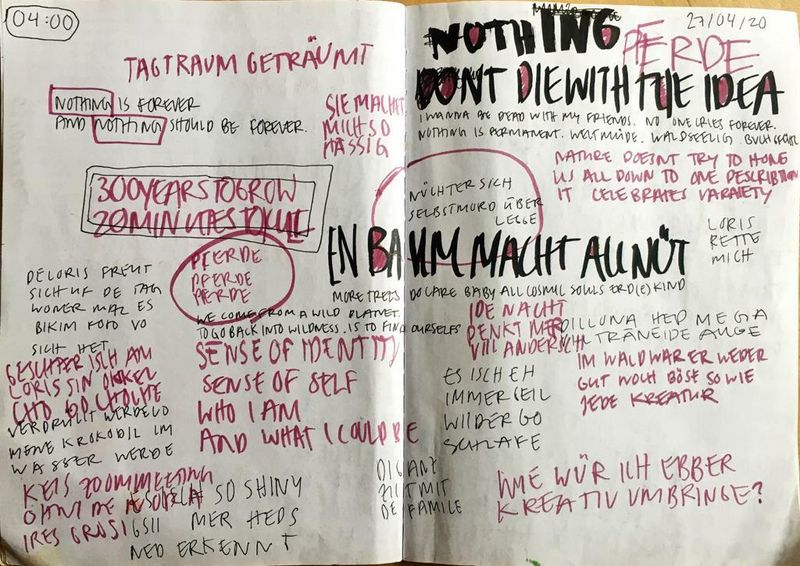 04:00
TAGTRAUM GETRÄUMT
NOTHING IS FOREVER
AND NOTHING SHOULD BE FOREVER.
SIE MACHET
MICH SO
HÄSSIG
300 YEARS TO GROW
20 MINUTES TO KILL
PFERDE
PFERDE
PFERDE
DELORIS FREUT
SICH UF DE TAG
WONER MAL ES
BIKINI FOTO VO
SICH HET.
WE COME FROM A WILD PLANET.
TO GO BACK INTO WILDNESS. IS TO FIND OURSELFS
SENSE OF IDENTITY
SENSE OF SELF
WHO I AM
AND WHAT I COULD BE
ISCH AM
LORIS SIN ONKEL
VERDRÜLLT WERDE VO
MEINE KROKODIL IM
WASSER WERDE
KEIS ZOOM MEETING
OHNI DE
IRES
SO SHINY
GSII MER HEDS
NED ERKENNT
27/04/20
NOTHING
PFERDE
DONT DIE WITH THE IDEA
I WANNA BE DEAD WITH MY FRIENDS. NO ONE CRIES FOREVER.
NOTHING IS PERMANENT. WELTMÜDE. WALDSEELIG.
NATURE DOESNT TRY TO HONE
US ALL DOWN TO ONE DESCRIPTION
IT CELEBRATES VARAIETY
NÜCHTER SICH
SELBSTMORD ÜBER
LEGGE
LORIS
RETTE
MICH
EN BAUM MACHT AU NÜT
MORE TREES DO CARE BABY ALL COSMIC SOULS ERD(E)KIND
IDE NACHT
DENKT MER
VIIL ANDERSCH
DILLUNA HED MEGA
TRÄNEIDE AUGE
IM WALD WAR ER WEDER
GUT NOCH BÖSE SO WIE
JEDE KREATUR
ES ISCH EH
IMMER GEIL
WIIDER GO
SCHLAFE
DI GANZ
ZIIT MIT
DE FAMILE
WIE WÜR ICH EBBER
KREATIV UMBRINGE?